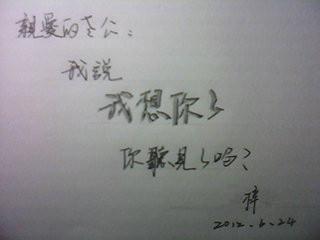 親愛的老公：
我說
我想你了
你聽見了吗？
梓
2012.6.24